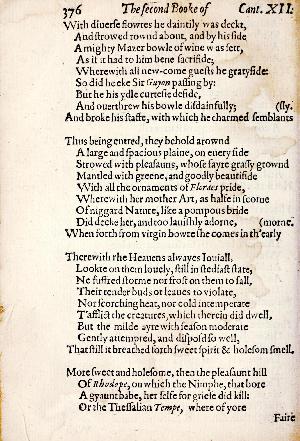 376 The second Booke of Cant. XII.
With diuerse flowres he daintily was deckt,
And strowed round about, and by his side
A mighty Mazer bowle of wine was sett,
As if it had to him bene sacrifide;
Wherewith all new-come guests he gratyfide:
So did he eke Sir Guyon passing by:
But he his ydle curtesie defide,
And ouerthrew his bowle disdainfully; (sly.
And broke his staffe, with which he charmed semblants
Thus being entred, they behold arownd
A large and spacious plaine, on euery side
Strowed with pleasauns, whose fayre grassy grownd
Mantled with greene, and goodly beautifide
With all the ornaments of Floraes pride,
Wherewith her mother Art, as halfe in scorne
Of niggard Nature, like a pompous bride
Did decke her, and too lauishly adorne, (morne.
When forth from virgin bowre she comes in th'early
Therewith the Heauens alwayes Iouiall,
Lookte on them louely, still in stedfast state,
Ne suffred storme nor frost on them to fall,
Their tender buds or leaues to violate,
Nor scorching heat, nor cold intemperate
T'afflict the creatures, which therein did dwell,
But the milde ayre with season moderate
Gently attempred, and disposd so well,
That still it breathed forth sweet spirit & holesom smell.
More sweet and holesome, then the pleasaunt hill
Of Rhodope, on which the Nimphe, that bore
A gyaunt babe, her selfe for griefe did kill;
Or the Thessalian Tempe, where of yore
Faire